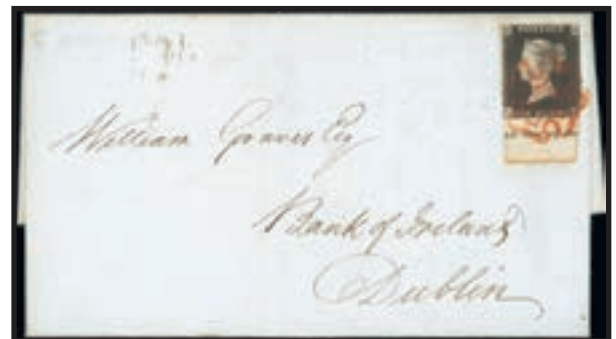 POSTAGE
William Graves Esq
Bank of Ireland
Dublin